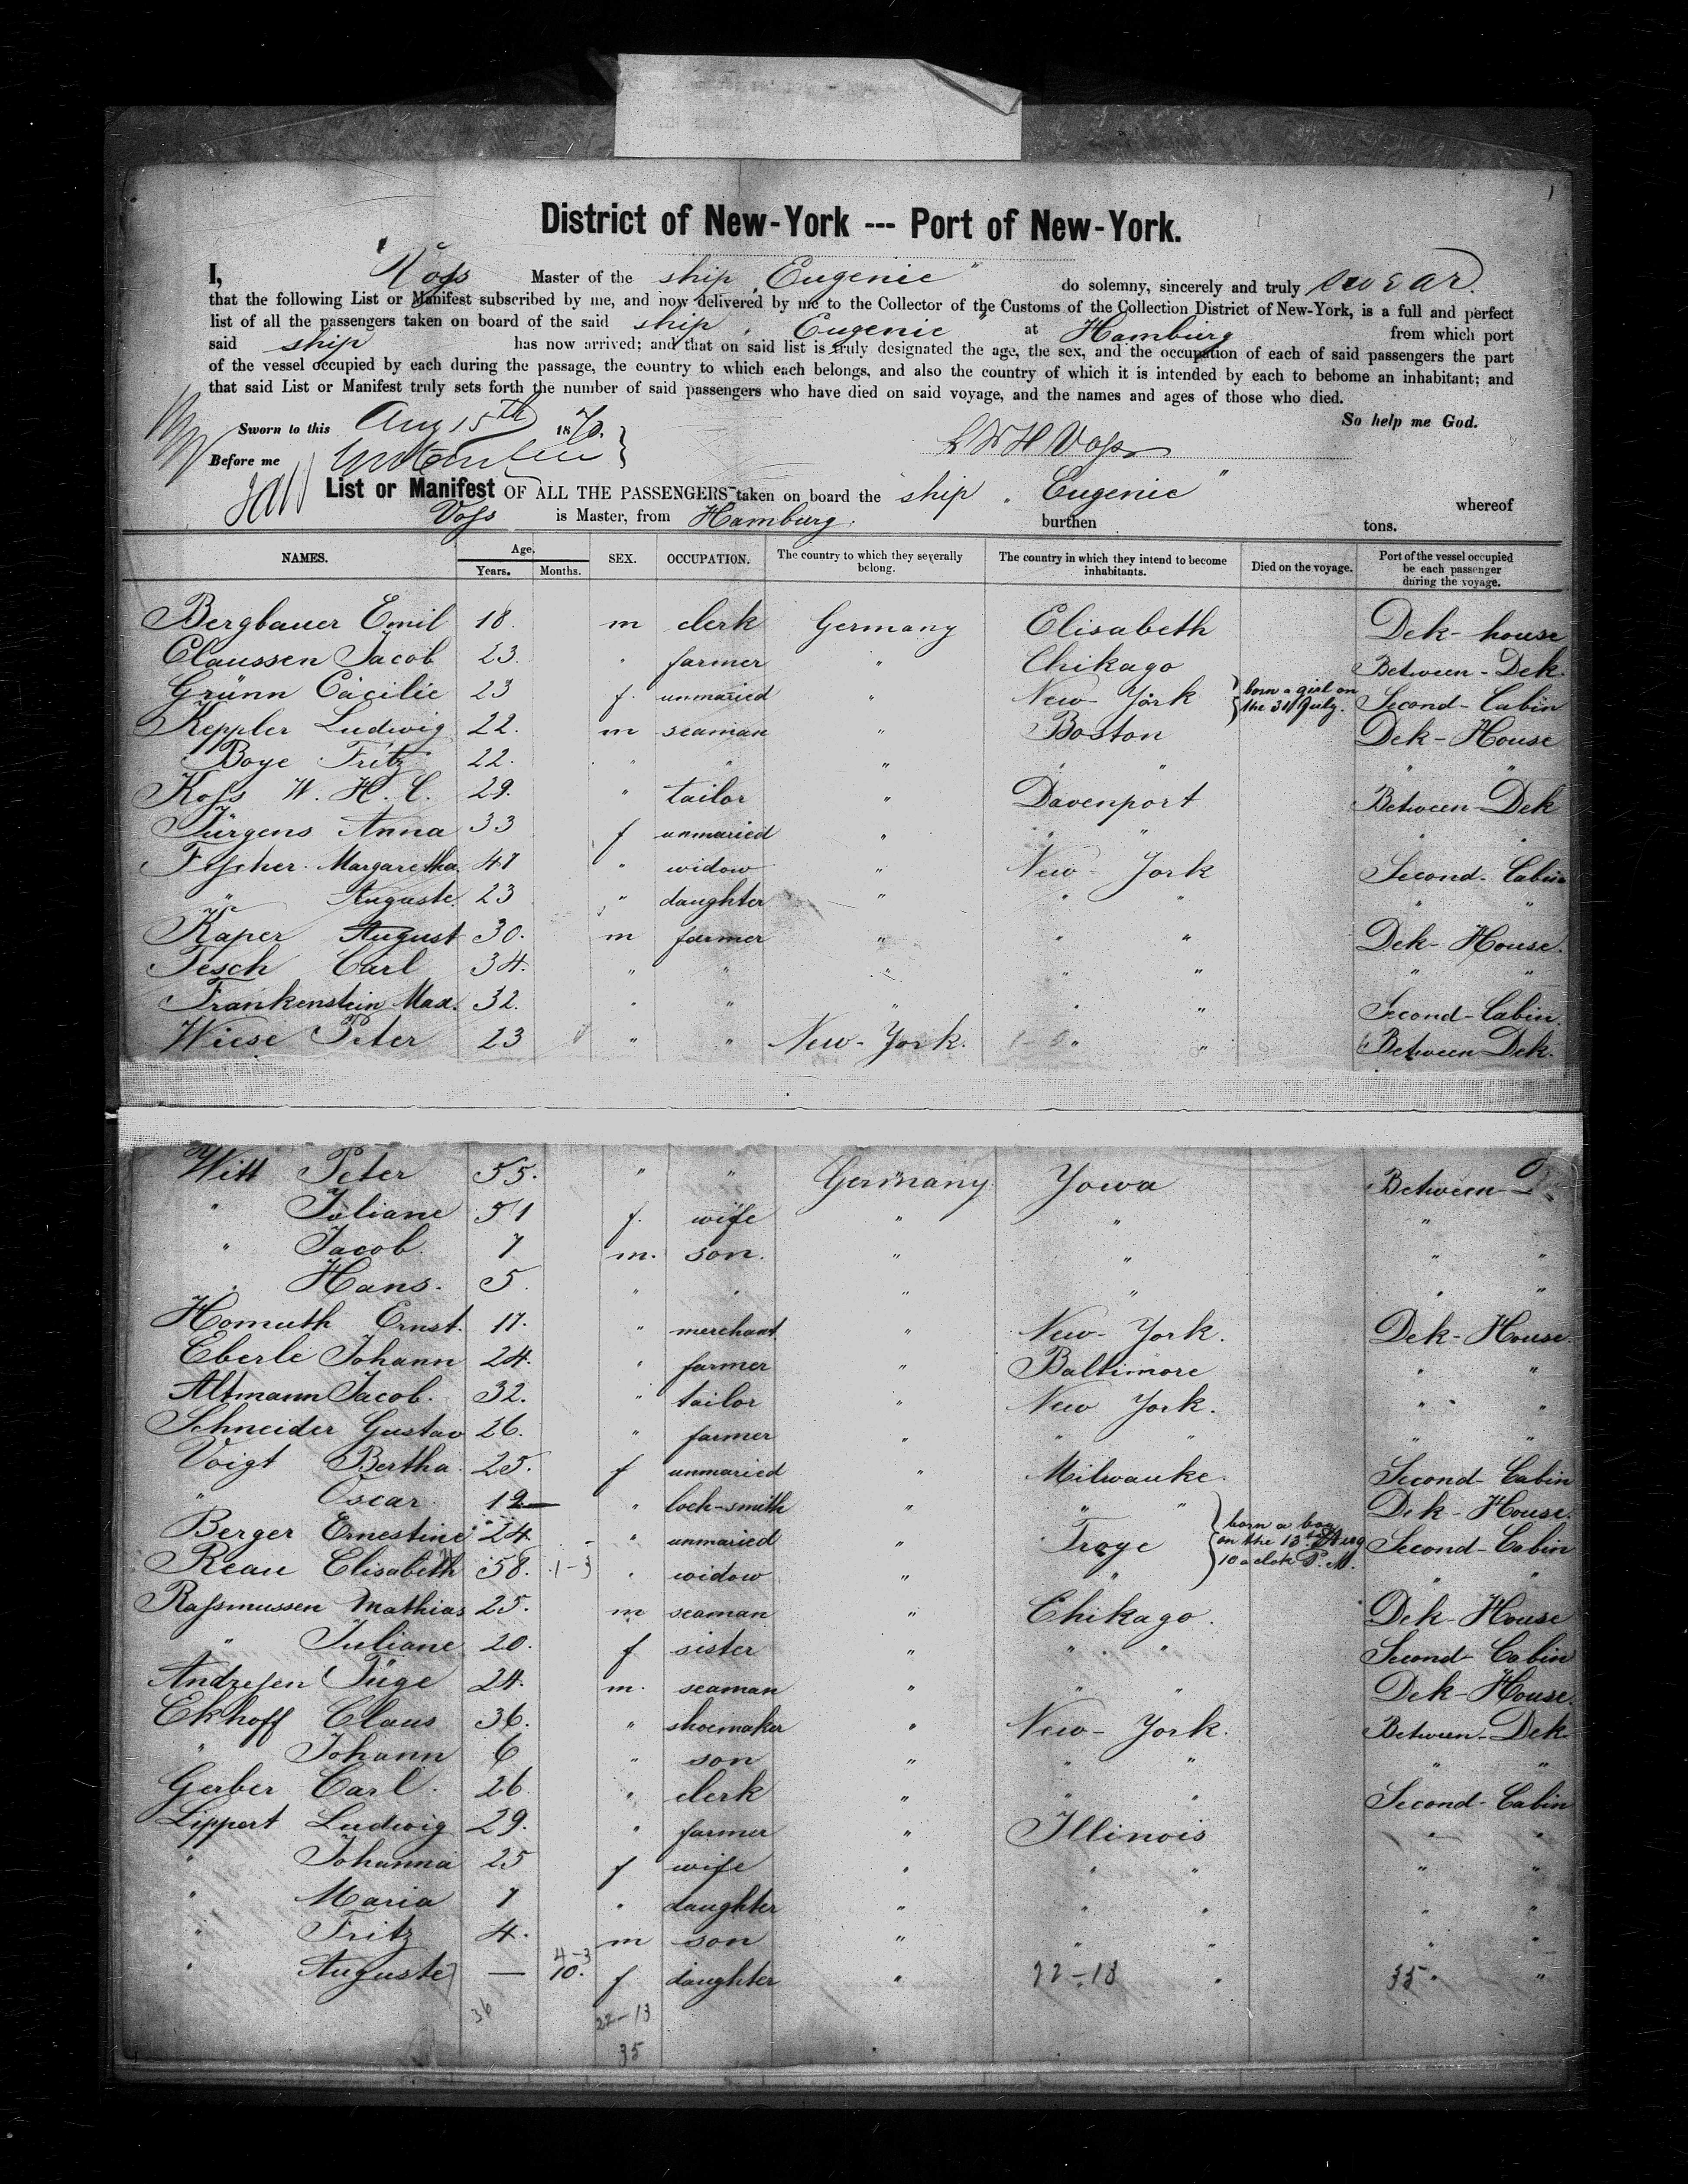 1
District of New-York --- Port of New-York.
I, Voss Master of the ship „Eugenie" do solemny, sincerely and truly swear.
that the following List or Manifest subscribed by me, and now delivered by me to the Collector of the Customs of the Collection District of New-York, is a full and perfect
list of all the passengers taken on board of the said ship „Eugenie" at Hamburg from which port
said ship has now arrived; and that on said list is truly designated the age, the sex, and the occupation of each of said passengers the part
of the vessel occupied by each during the passage, the country to which each belongs, and also the country of which it is intended by each to bebome an inhabitant; and
that said List or Manifest truly sets forth the number of said passengers who have died on said voyage, and the names and ages of those who died.
So help me God.
Sworn to this Aug 15th 1870.
Before me
Voss
List or Manifest OF ALL THE PASSENGERS taken on board the ship „Eugenie" whereof
Voss is Master, from Hamburg. burthen tons.
NAMES. Age. Years. Months. SEX. OCCUPATION. The country to which they severally belong. The country in which they intend to become inhabitants. Died on the voyage. Port of the vessel occupied be each passenger during the voyage.
Bergbauer Emil 18. m clerk Germany Elisabeth Dek-house
Claussen Jacob 23. " farmer " Chikago Between-Dek.
Grünn Cäcilie 23 f. unmaried " New-York born a girl on the 31 July. Second-Cabin
Keppler Ludwig 22. m seaman " Boston Dek-House
Boye Fritz 22. " " " " " " "
Koss W. H. C. 29. " tailor " Davenport Between-Dek
Jürgens Anna 33 f unmaried " " " "
Fischer Margaretha. 47 " widow " New-York Second-Cabin
" Auguste. 23 " daughter " " " " "
Kaper August 30. m farmer " " " Dek-House.
Tesch Carl 34. " " " " " " "
Frankenstein Max. 32. " " " " " Second-Cabin.
Wiese Peter 23 " " New-York. " " Between Dek.
Witt Peter 55. " " Germany Yowa Between-
" Juliane 51 f. wife " " "
" Jacob. 7 m. son. " " " "
" Hans. 5. " " " " " "
Homuth Ernst. 17. " merchant " New-York. Dek-House.
Eberle Johann 24. " farmer " Baltimore " "
Altmann Jacob. 32. " tailor " New York. " "
Schneider Gustav 26. " farmer " " " " "
Voigt Bertha. 25. f unmaried " Milwauke. Second-Cabin
" Oscar. 19 " lock-smith " " " Dek-House.
Berger Ernestine 24. " unmaried " Troye born a boy on the 13th Aug 10 aclok P. M. Second-Cabin
Reau Elisabeth 58. 1-3 " widow " " " "
Rassmussen Mathias 25. m seaman " Chikago. Dek-House
" Juliane 20. f sister " " " Second-Cabin
Andresen Tüge 24. m. seaman " " " Dek-House.
Ekhoff Claus 36. " shoemaker " New-York. Between-Dek.
" Johann 6 " son " " " " "
Gerber Carl. 26 " clerk " " " Second-Cabin
Lippert Ludwig 29. " farmer " Illinois " "
" Johanna 25 f wife " " " " "
" Maria 7 " daughter " " " " "
" Fritz 4. m son " " " " "
4-3
" Auguste — 10. f daughter " 22-13 " 35 " "
36 22-13
35